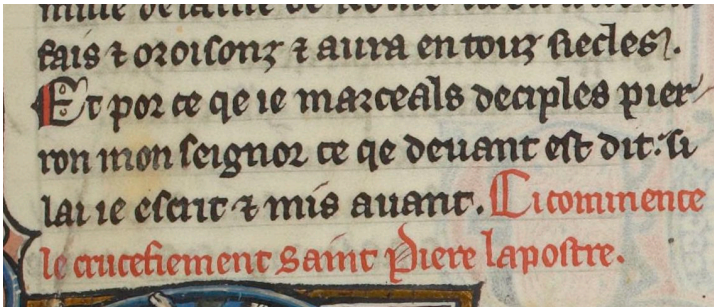 fais ⁊ oroisonz ⁊ aura en touz siecles.
Et por ce qe ie marceals deciples pier-
ron mon seignor ce qe deuant est dit: si
lai ie escrit ⁊ mis auant. Ci commence
le crucefiement saint Piere lapostre.